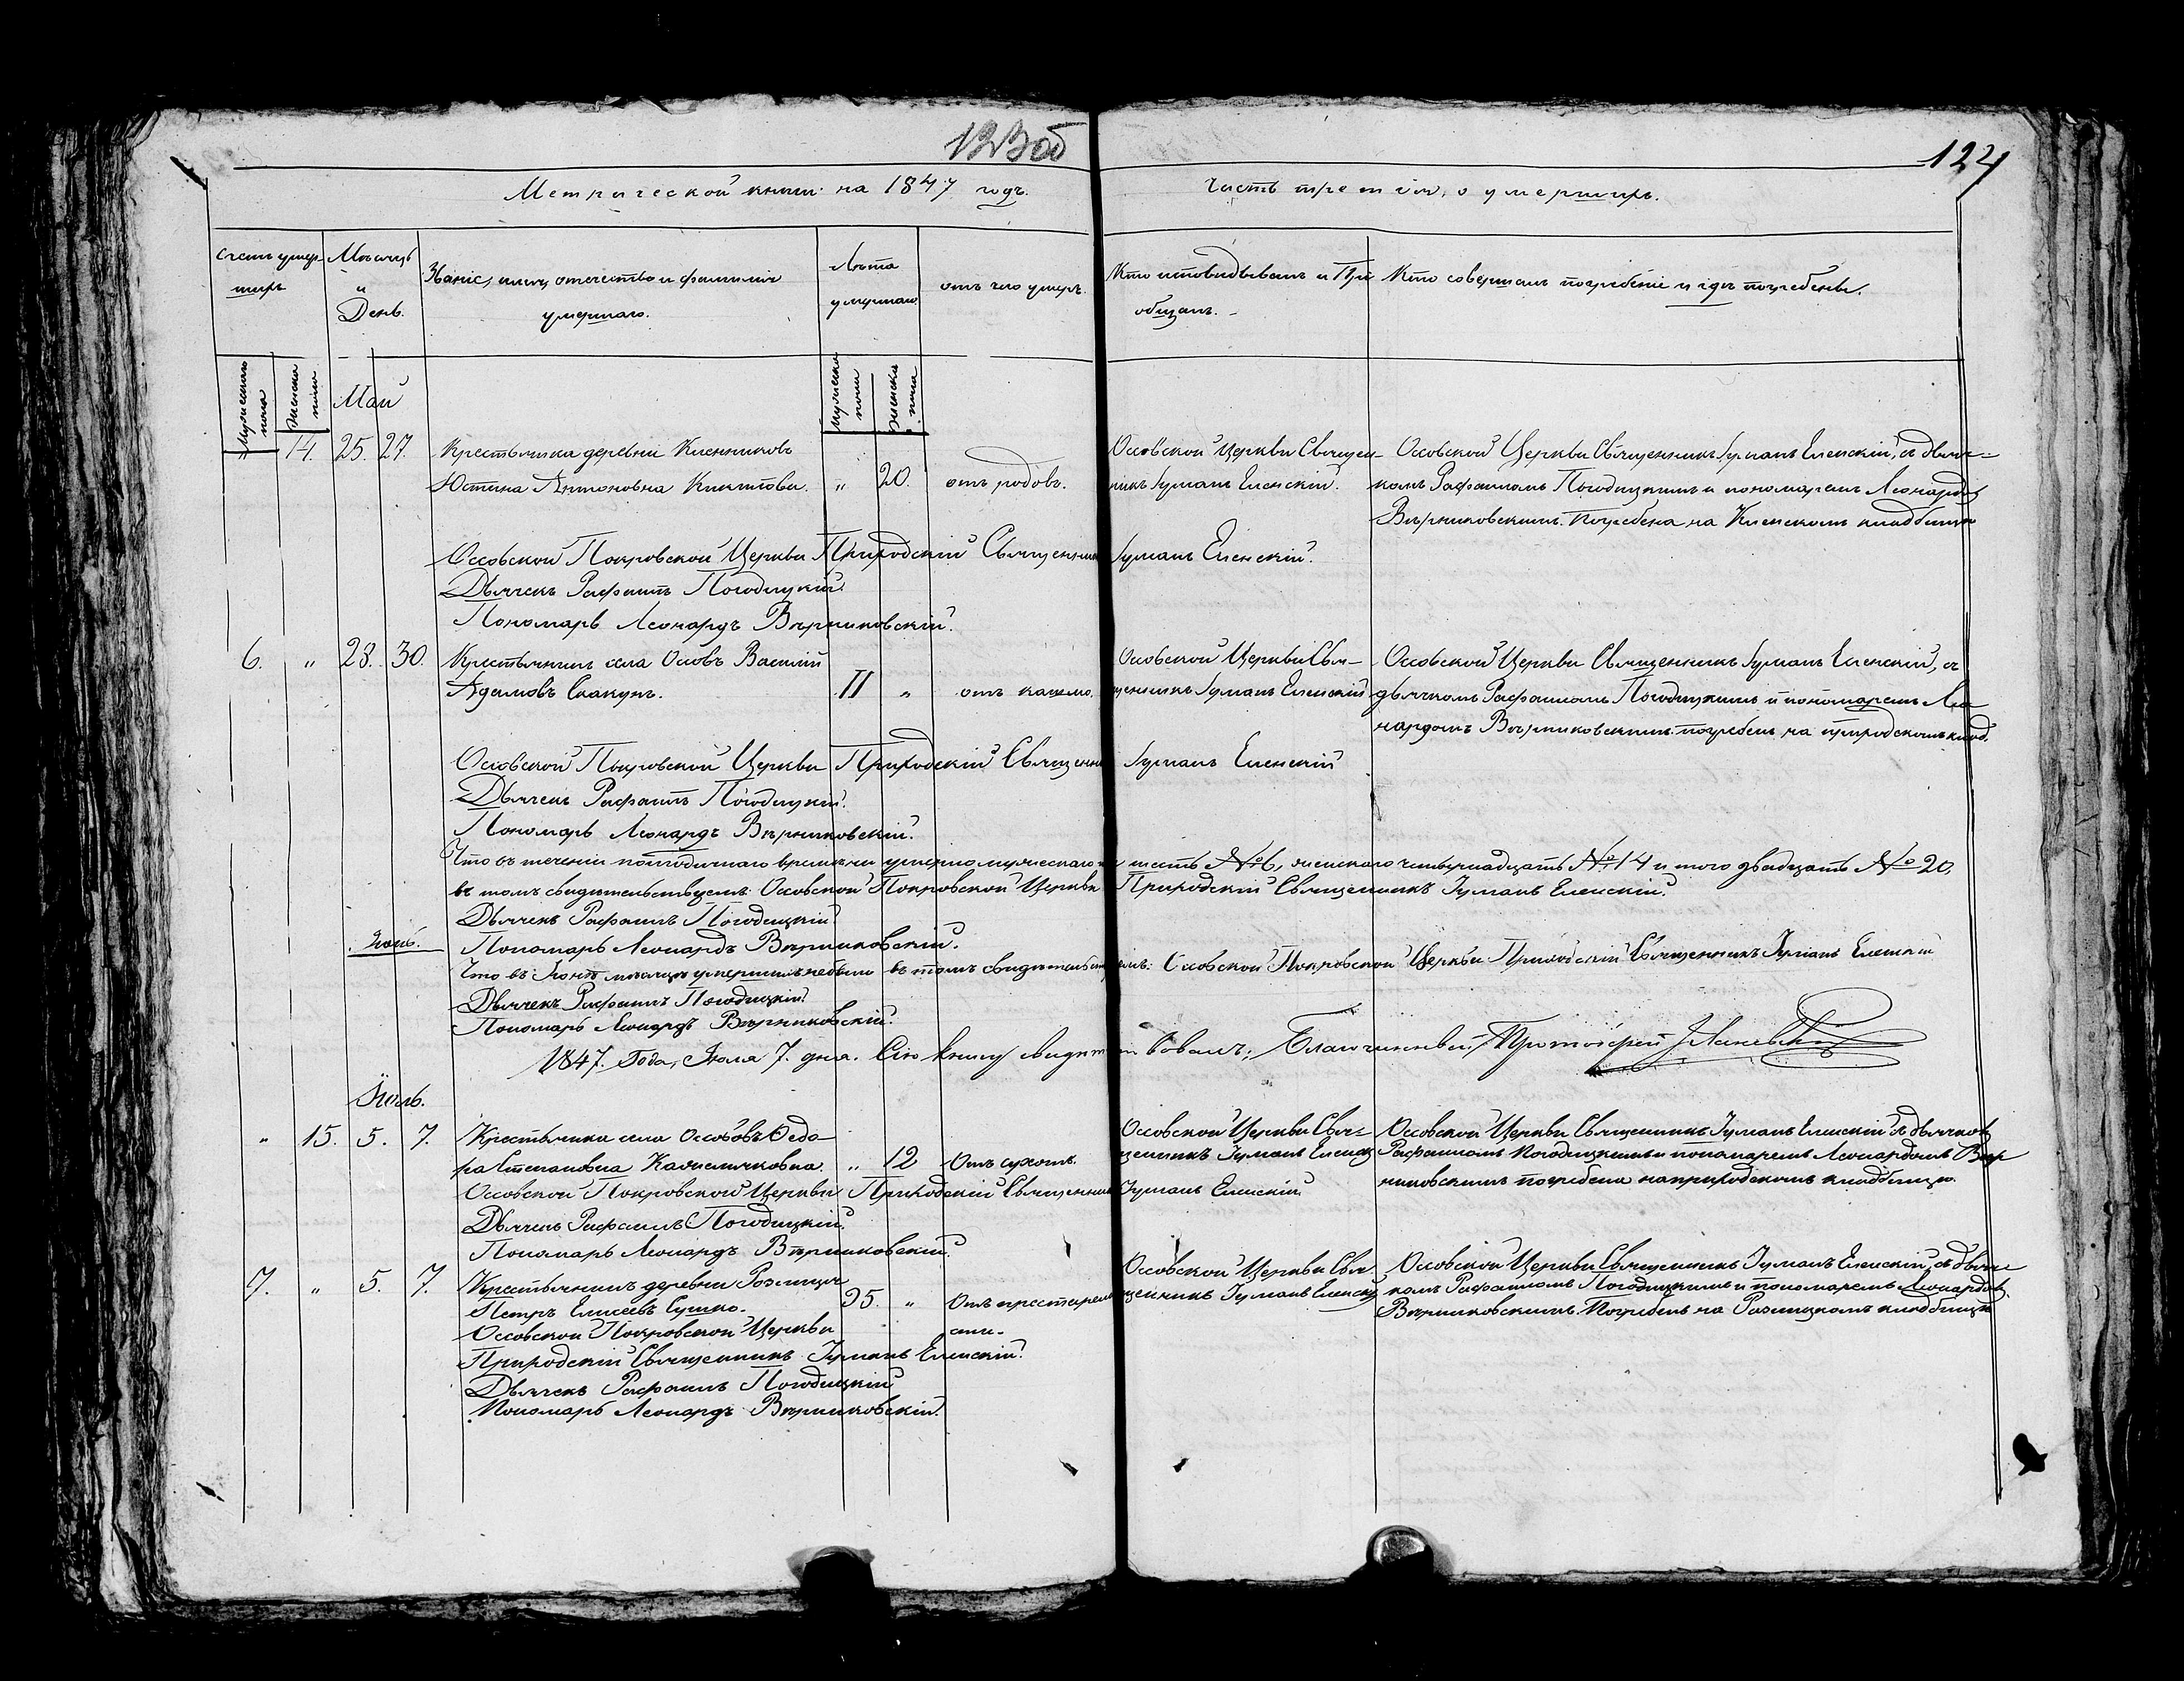 123об
124
Метрической книги на 1847 годъ.
Часть третія, о умершихъ.
Счетъ умер-
шихъ
Мѣсяцъ
и
День.
Званіе, имя, отечество и фамилія
умершаго.
Лѣта
умершаго
отъ чего умеръ.
Кто исповѣдывалъ и При
общалъ.
Кто совершалъ погребеніе и гдѣ погребены.
Мужескаго
пола
Женска
пола
Май
Мужеска
пола
Женска
пола
" 14. 25. 27. Крестьянка деревни
Юстина Антоновна " 20. отъ родовъ.
Осовской Церкви Священ-
никъ Іуліанъ Еленскій.
Осовской Церкви Священникъ Іуліанъ Еленскій, съ дьяч-
комъ Рафаиломъ Погодицкимъ и пономаремъ Леонардо
Вѣрниковскимъ. Погребена на кладбищѣ
Осовской Покровской Церкви Приходскій Священникъ Іуліанъ Еленскій.
Дьячекъ Рафаилъ Погодицкій.
Пономарь Леонардъ Вѣрниковскій.
6. " 28. 30. Крестьянинъ села Осовъ Василій
Адамовъ Скакунъ. II " отъ кашлю.
Осовской Церкви Свя-
щенникъ Іуліанъ Еленскій
Осовской Церкви Священникъ Іуліанъ Еленскій, съ
дьячкомъ Рафаиломъ Погодицкимъ и пономаремъ Лео
нардомъ Вѣрниковскимъ погребенъ на приходскомъ клад.
Осовской Покровской Церкви Приходскій Священни Іуліанъ Еленскій
Дьячекъ Рафаилъ Погодицкій.
Пономарь Леонардъ Вѣрниковскій.
Что въ теченіи полгодичнаго времени умерло мужескаго шесть №6, женскаго четырнадцать №14 и того двадцать №20,
въ томъ свидѣтельствуемъ: Осовской Покровской Церкви Приходскій Священникъ Іуліанъ Еленскій.
Дьячекъ Рафаилъ Погодицкій
Іюнь. Пономарь Леонардъ Вѣрниковскій.
Что въ Іюнѣ мѣсяцѣ умершихъ небыло въ томъ свидѣтельствуемъ: Осовской Покровской Церкви Приходскій Священникъ Іуліанъ Еленскій
Дьячекъ Рафаилъ Погодицкій
Пономарь Леонардъ Вѣрниковскій.
1847. Года, Іюля 7. дня. Сію книгу свидѣтельствовалъ: Благочинный, Протоіерей
Іюль.
" 15. 5. 7. Крестьянка села Оссововъ Ѳедо-
ра Степановна " 12 Отъ сухотъ.
Осовской Церкви Свя-
щенникъ Іуліанъ Еленск
Осовской Церкви Священникъ Іуліанъ Еленскій съ дьячком
Рафаиломъ Погодицкимъ и пономаремъ Леонардомъ Вѣр
никовскимъ погребена на приходскомъ кладбищѣ.
Осовской Покровской Церкви Приходскій Священник Іуліанъ Еленскій
Дьячекъ Рафаилъ Погодицкій.
Пономарь Леонардъ Вѣрниковскій.
7. " 5. 7. Крестьянинъ деревни
Петръ Елисеевъ Сушко. 95. " Отъ престарел
ости.
Осовской Церкви Свя
щенникъ Іуліанъ Еленск
Осовской Церкви Священникъ Іуліанъ Еленскій, съ дьяч-
комъ Рафаиломъ Погодицкимъ и пономаремъ Леонардом
Вѣрниковскимъ. Погребенъ на кладбищѣ
Осовской Покровской Церкви
Приходскій Священникъ Іуліанъ Еленскій.
Дьячекъ Рафаилъ Погодицкій
Пономарь Леонардъ Вѣрниковскій.